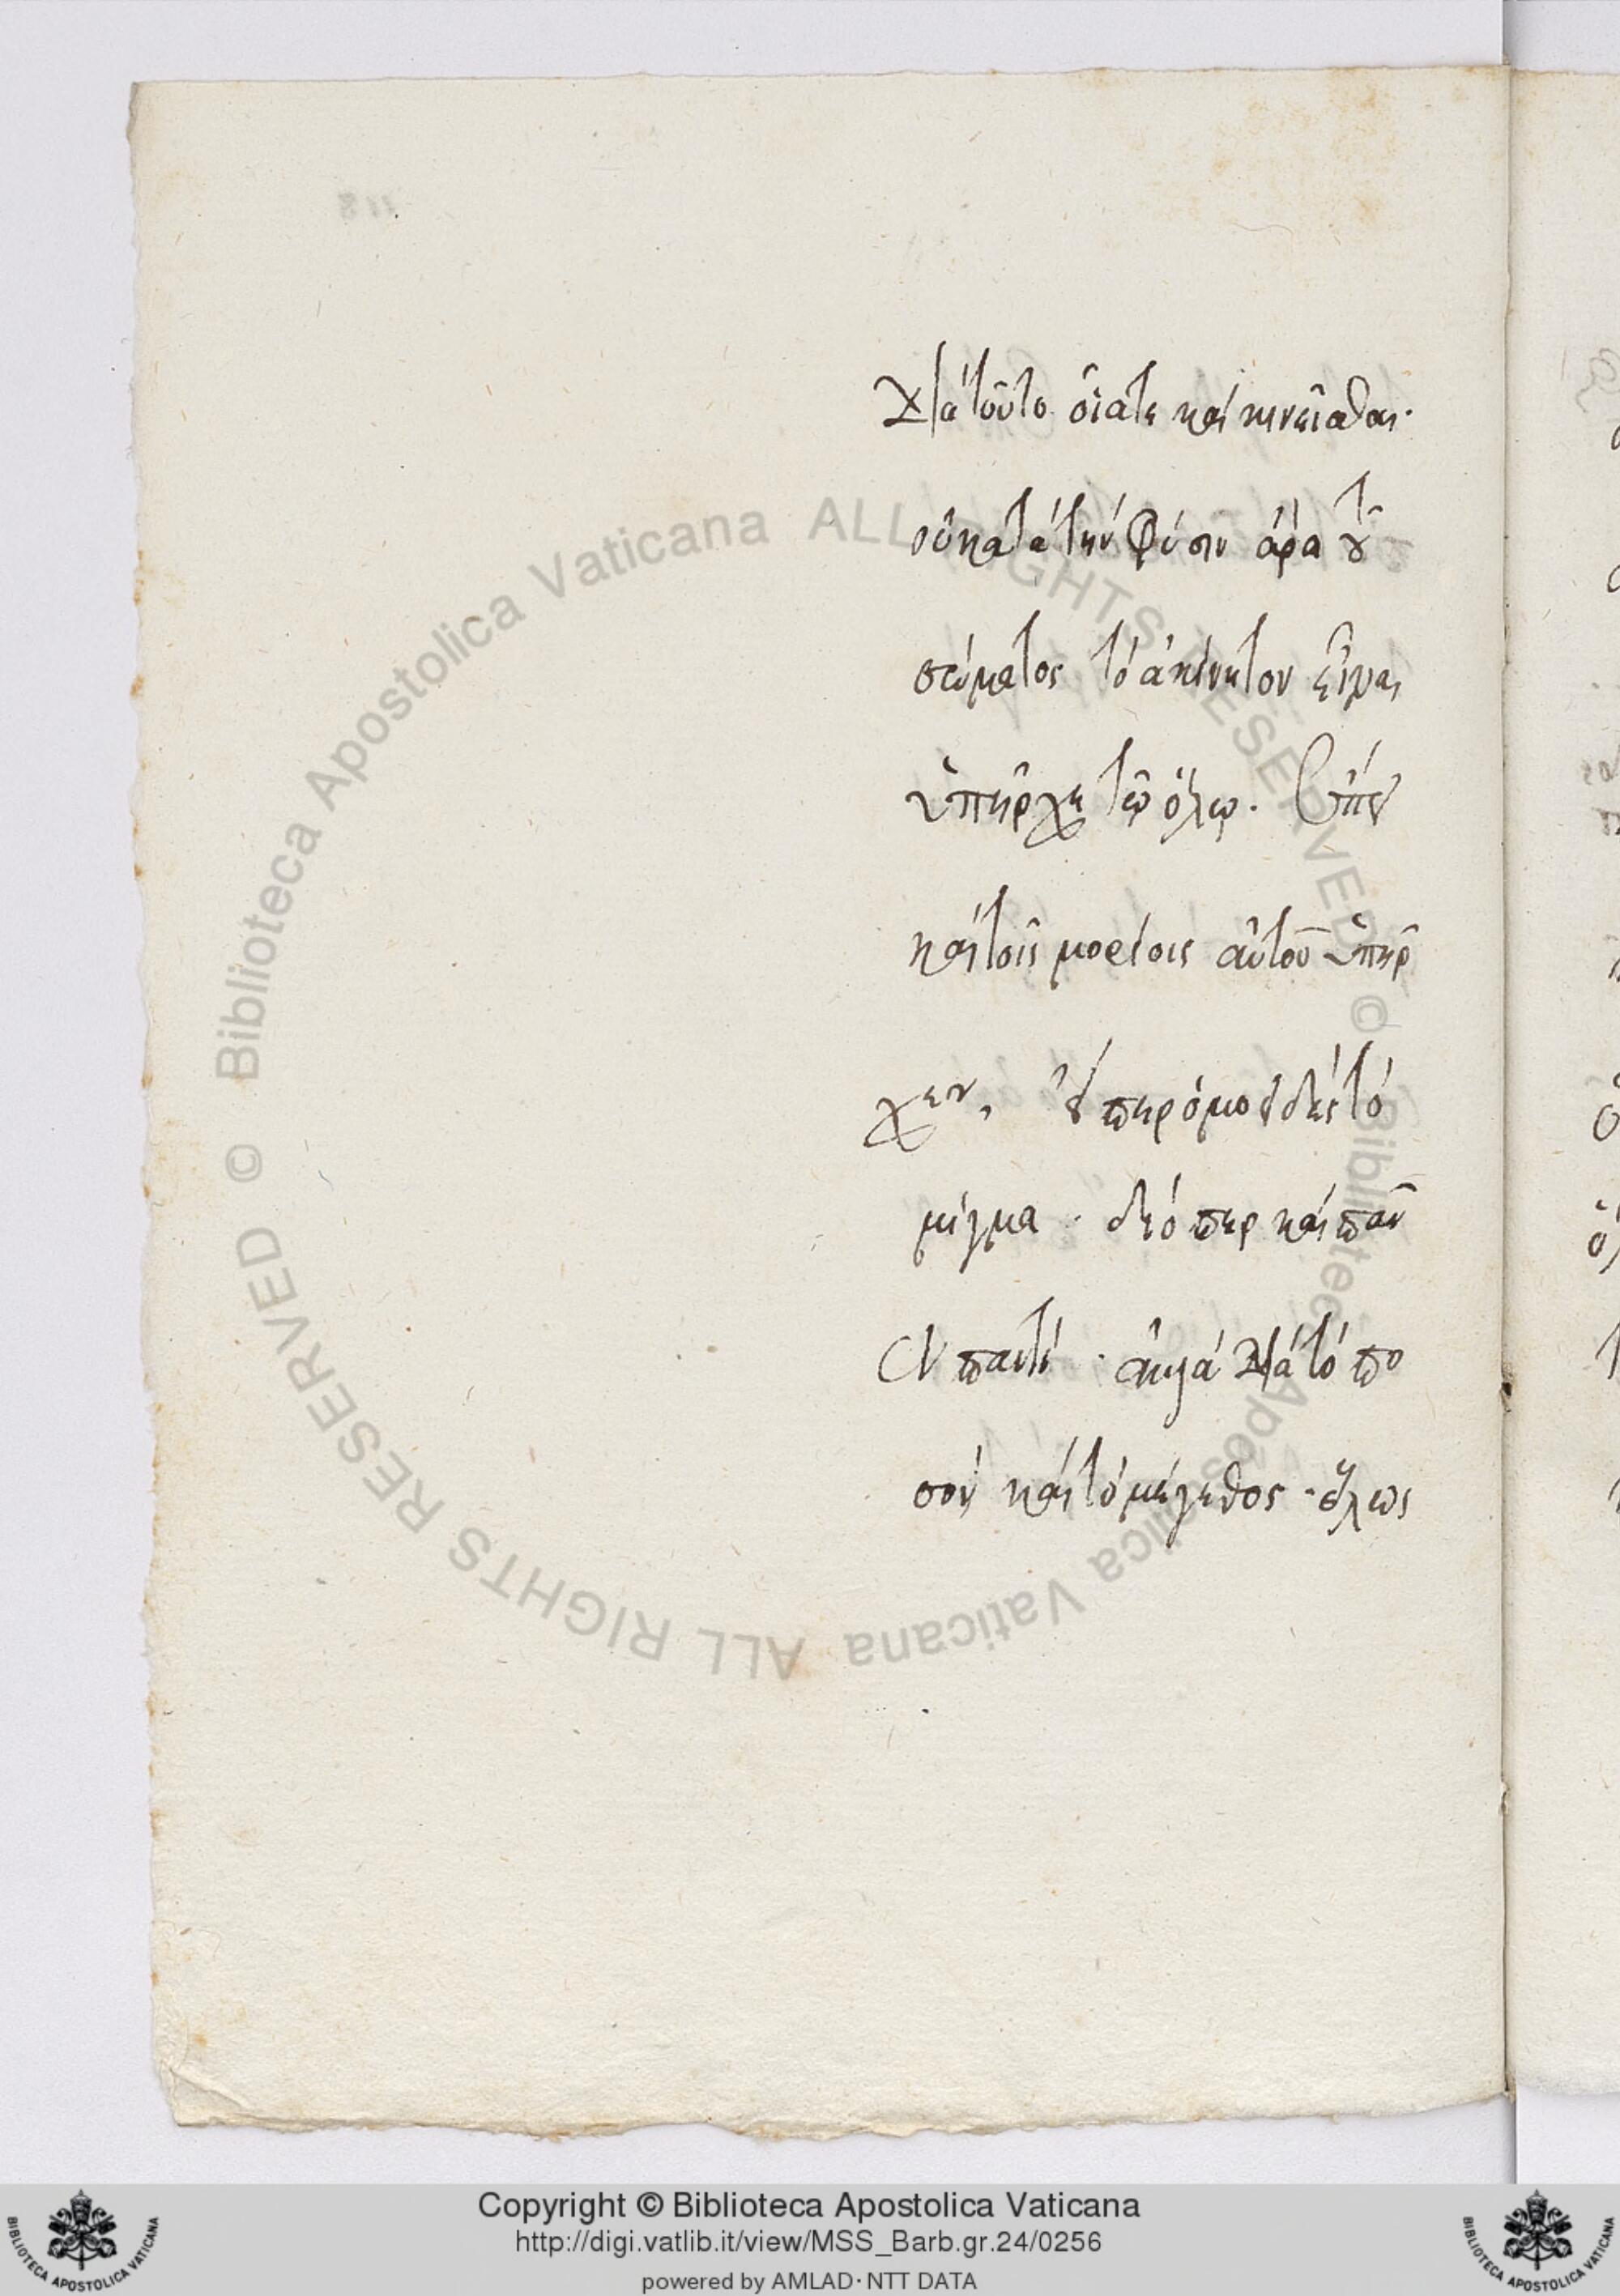 Διὰ τοῦτο οἷά τε καὶ κινεῖσθαι·
οὐ κατὰ τὴν φύσιν ἄρα τοῦ
σώματος τὸ ἀκίνητον εἶναι
ὑπῆρχε τῷ ὅλῳ.
καὶ τοῖς μορίοις αὐτοῦ ὑπῆρ
χεν,
μίγμα· διόπερ καὶ πᾶν
ἐν παντί· ἀλλὰ διὰ τὸ πο
σὸν καὶ τὸ μέγεθος· ὅλως
© Biblioteca Apostolica Vaticana ALL RIGHTS RESERVED © Biblioteca Apostolica Vaticana ALL RIGHTS RESERVED
Copyright © Biblioteca Apostolica Vaticana
http://digi.vatlib.it/view/MSS_Barb.gr.24/0256
powered by AMLAD·NTT DATA
BIBLIOTECA APOSTOLICA VATICANA
BIBLIOTECA APOSTOLICA VATICANA